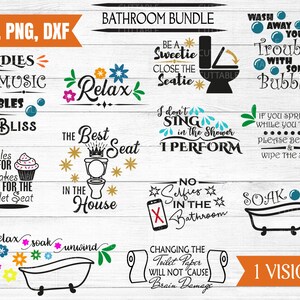 PNG, DXF
BATHROOM BUNDLE
WASH
AWAY
YOUR
Troub
WITH
SOME
Bubb
BE A
Sweetie
CLOSE THE
Seatie
MUSIC
BLISS
Relax
I don't
SING
in the Shower
I PERFORM
IF YOU SPRI
WHILE YOU
PLEASE BE
&
WIPE THE
The Best
Seat
IN THE
House
FOR THE
let Seat
NO
Selfies
IN THE
Bathroom
SOAK
relax soak unwind
CHANGING THE
Toilet Paper
WILL NOT CAUSE
Brain Damage
1 VISIO